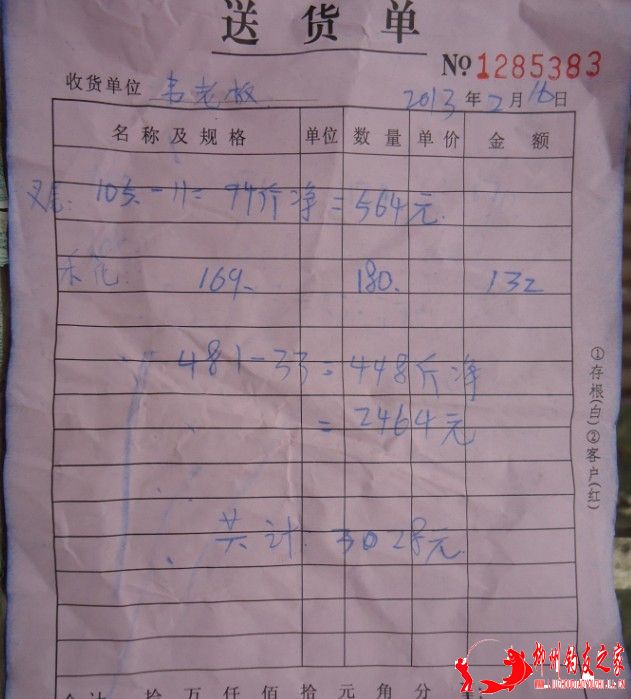 送货单
No 1285383
收货单位 韦老板 2013年2月16日
名称及规格 单位 数量 单价 金额
叉尾: 105-11= 94斤净=564元.
禾花 169、 180、 132
481-33=448斤净
=2464元
共计: 3028元
①存根(白)②客户(红)
拾 万 仟 佰 拾 元 角 分
柳州钓友之家